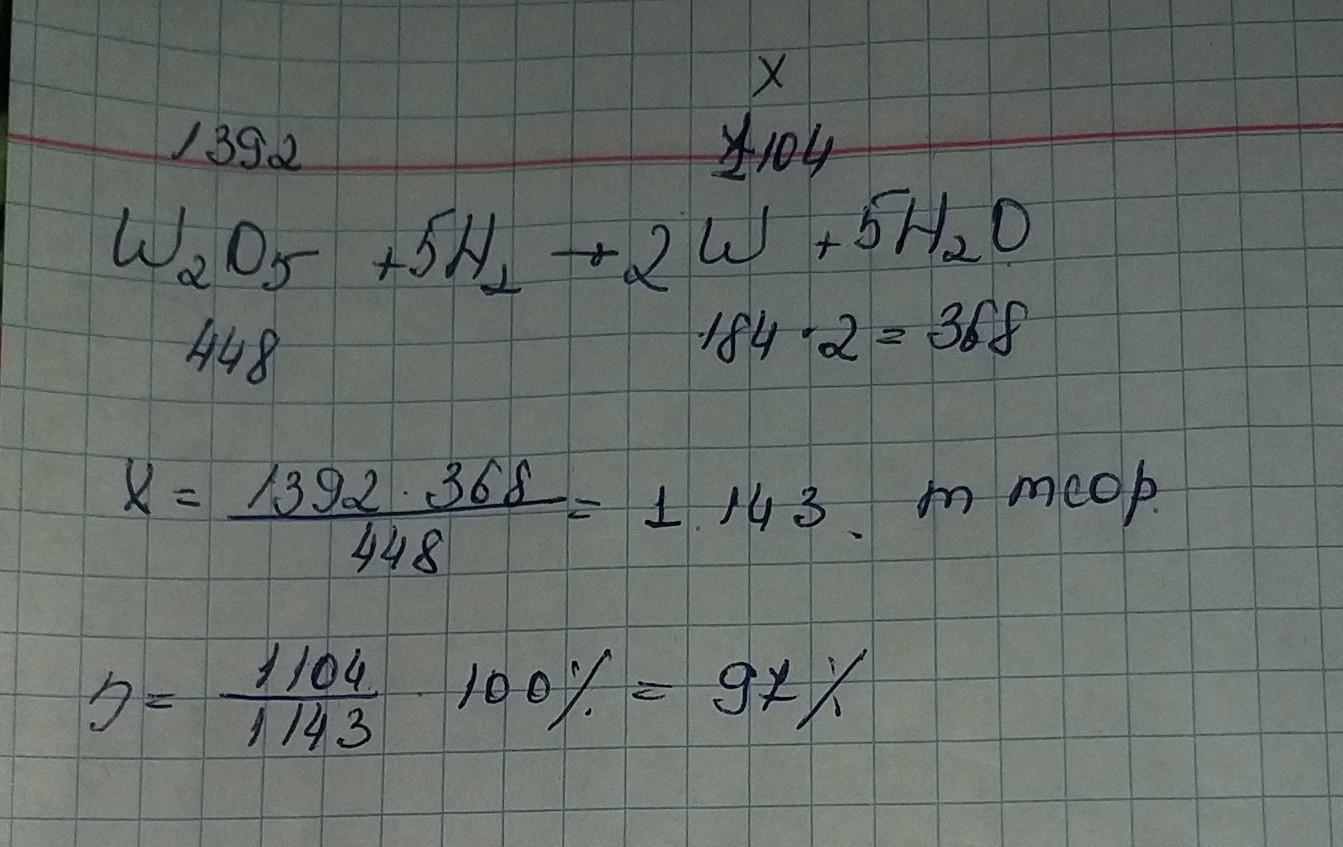 X
1392 1104
W₂O₅ + 5H₂ → 2W + 5H₂O
448 184 · 2 = 368
X = 1392 · 368 / 448 = 1.143. m теор.
η = 1104 / 1143 · 100% = 97%